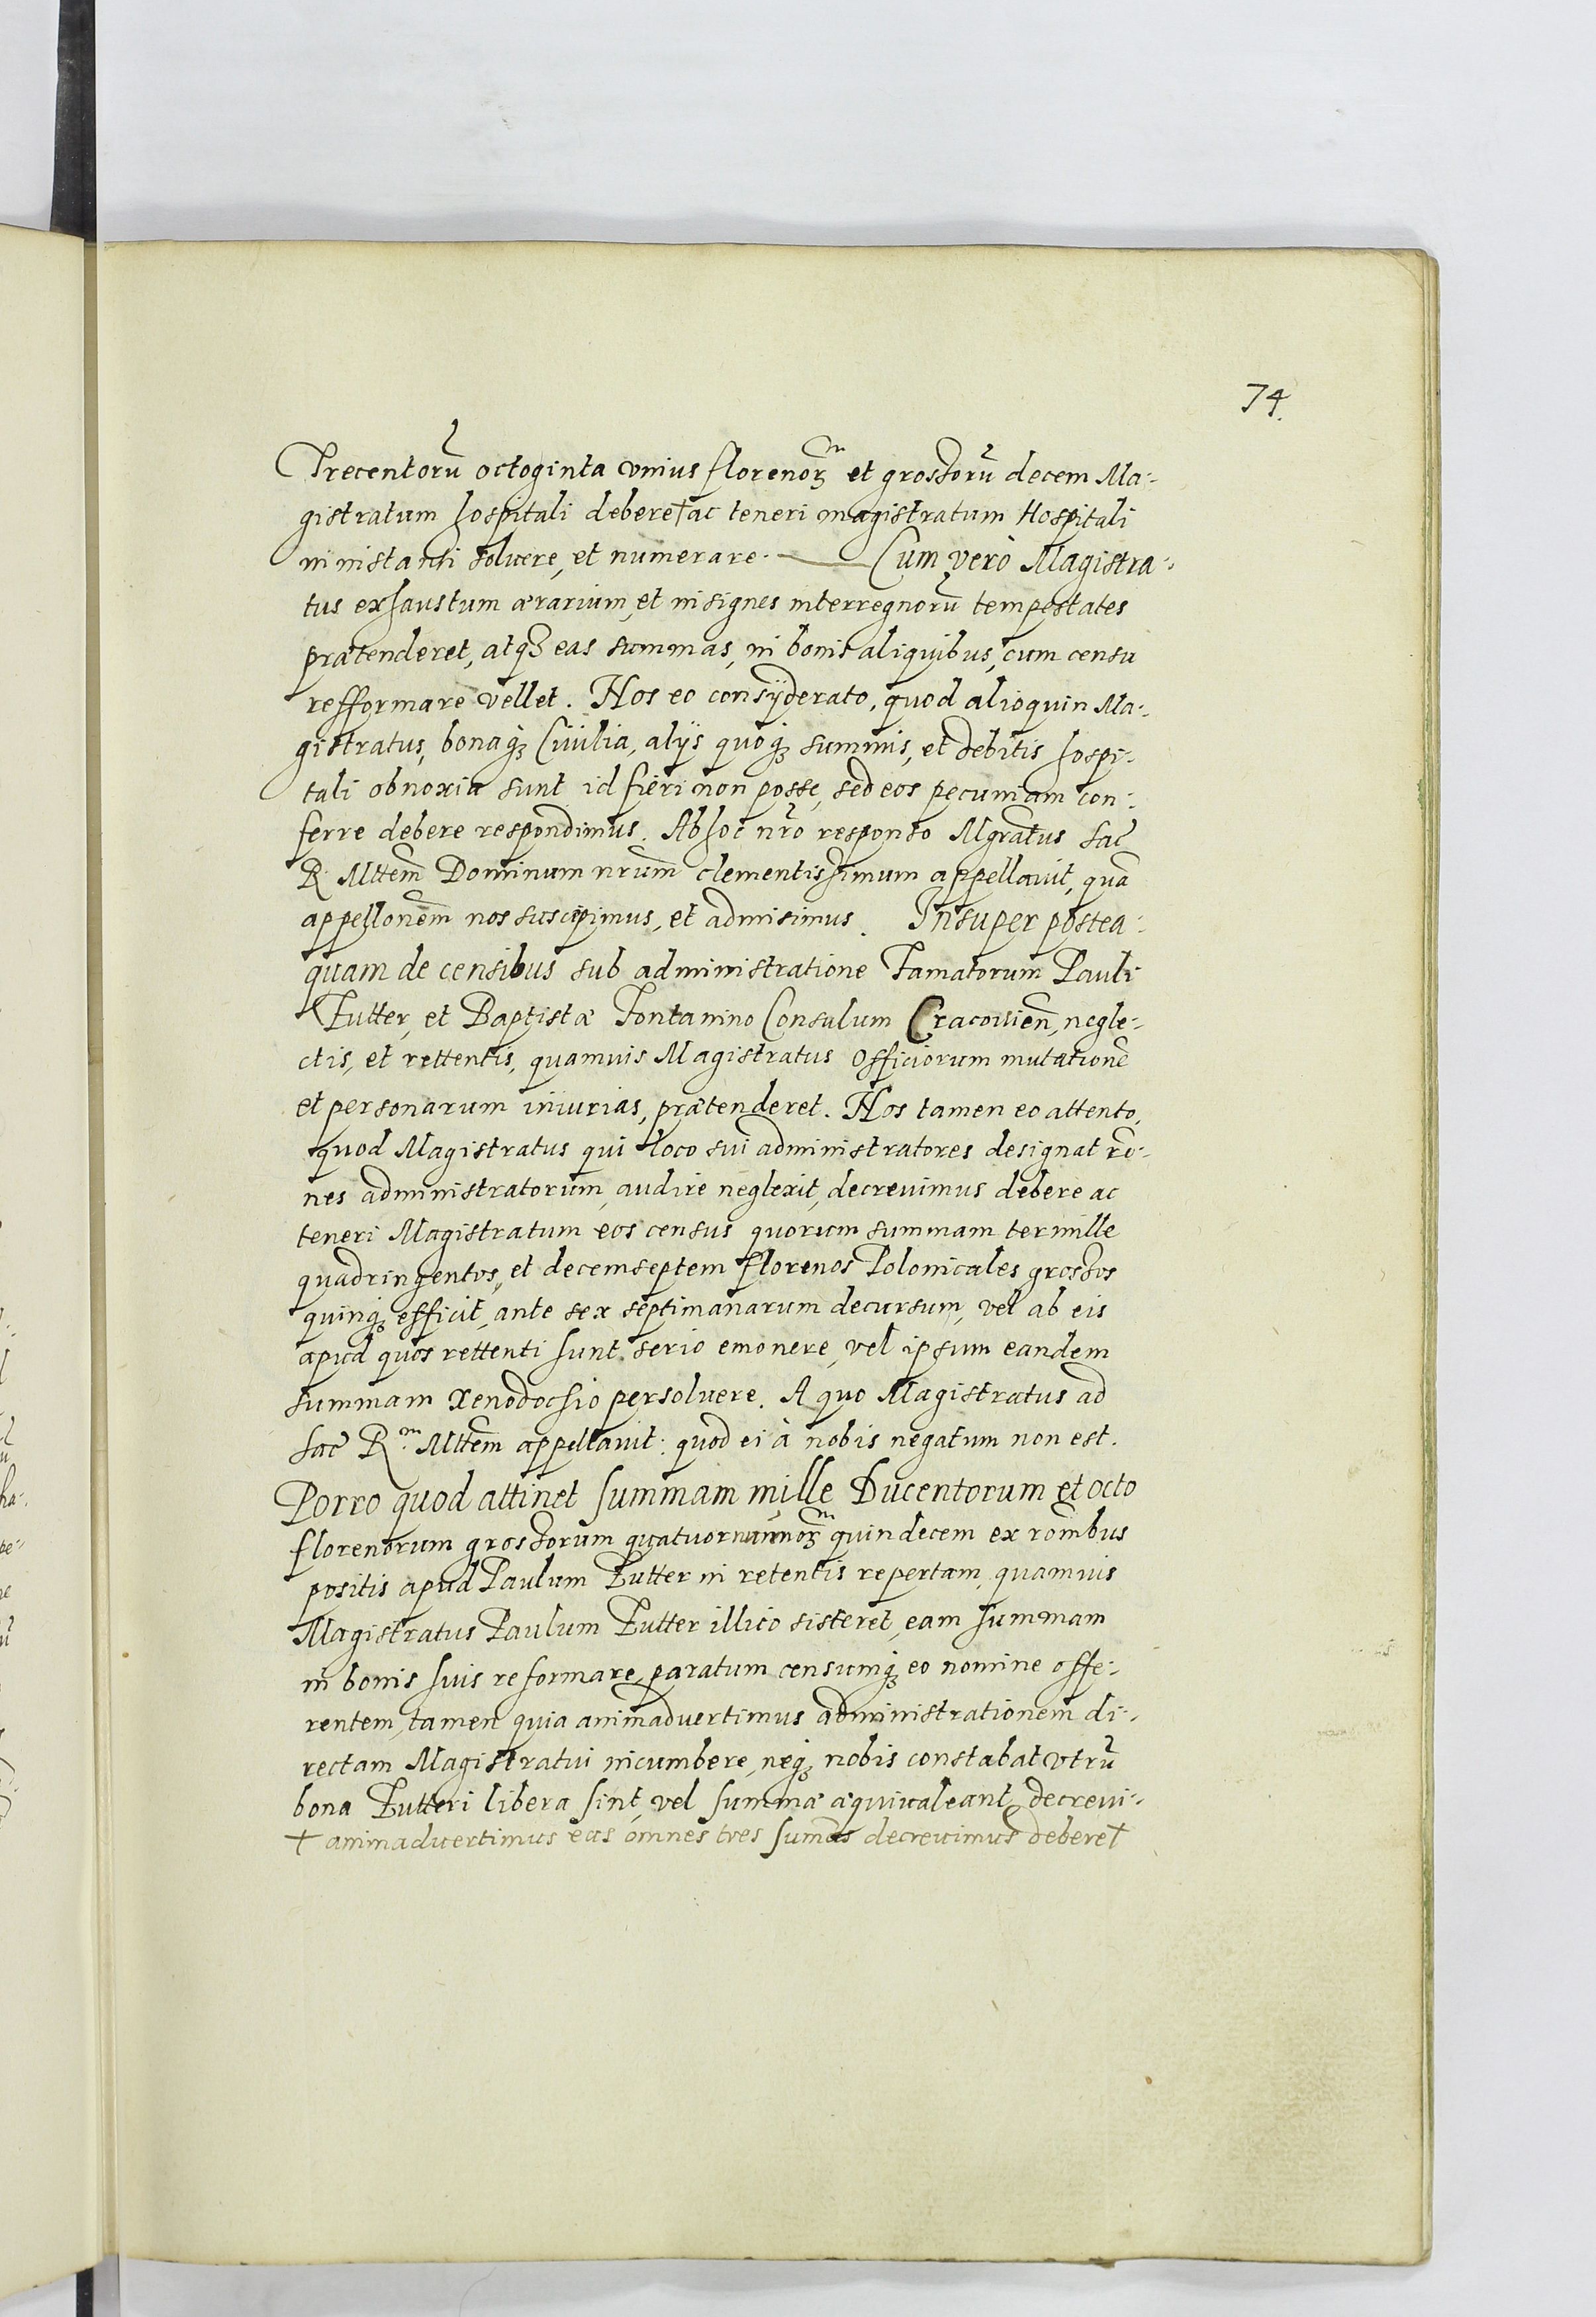 74.
Trecentorũ octoginta vnius florenoꝝ et grossorũ decem Ma-
gistratum hospitali debere † ac teneri magistratum Hospitali
in instanti soluere, et numerare. — Cum verò Magistra-
tus exhaustum ærarium, et insignes interregnorũ tempestates
prætenderet, atqꝫ eas summas, in bonis aliquibus, cum censu
refformare vellet. Nos eo consÿderato, quod alioquin Ma-
gistratus, bonaqꝫ Ciuilia, alijs quoqꝫ summis, et debitis hospi-
tali obnoxia sunt id fieri non posse, sed eos pecuniam con-
ferre debere respondimus. Ab hoc nr̃o responso Mgratus Sac̃
R. Mttem̃ Dominum nrum̃ clementissimum appellauit, quã
appellonem̃ nos suscepimus, et admisimus. Insuper postea-
quam de censibus sub administratione Famatorum Pauli
Zutter, et Baptistæ Fontanino Consulum Cracouien̄, negle-
ctis, et rettentis, quamuis Magistratus officiorum mutationẽ
et personarum iniurias, prætenderet. Nos tamen eo attento,
quod Magistratus qui loco sui administratores designat rõ-
nes administratorum, audire neglexit, decreuimus debere ac
teneri Magistratum eos census quorum summam termille
quadringentos, et decemseptem florenos Polonicales grossos
quinqꝫ efficit, ante sex septimanarum decursum, vel ab eis
apud quos rettenti sunt serio emonere, vel ipsum eandem
summam Xenodochio persoluere. A quo Magistratus ad
Sac̃ R.m Mttem̃ appellauit: quod ei à nobis negatum non est.
Porro quod attinet summam mille Ducentorum et octo
florenorum grossorum quatuor num̃oꝝ quindecem ex ronibus
positis apud Paulum Zutter in retentis repertam, quamuis
Magistratus Paulum Zutter illico sisteret, eam summam
in bonis suis reformare paratum censumqꝫ eo nomine offe-
rentem, tamen quia animaduertimus administrationem di-
rectam Magistratui incumbere, neqꝫ nobis constabat vtrũ
bona Zutteri libera sint, vel summæ æquiualeant, decreui-
† animaduertimus eas omnes tres sum̃as decreuimus debere †